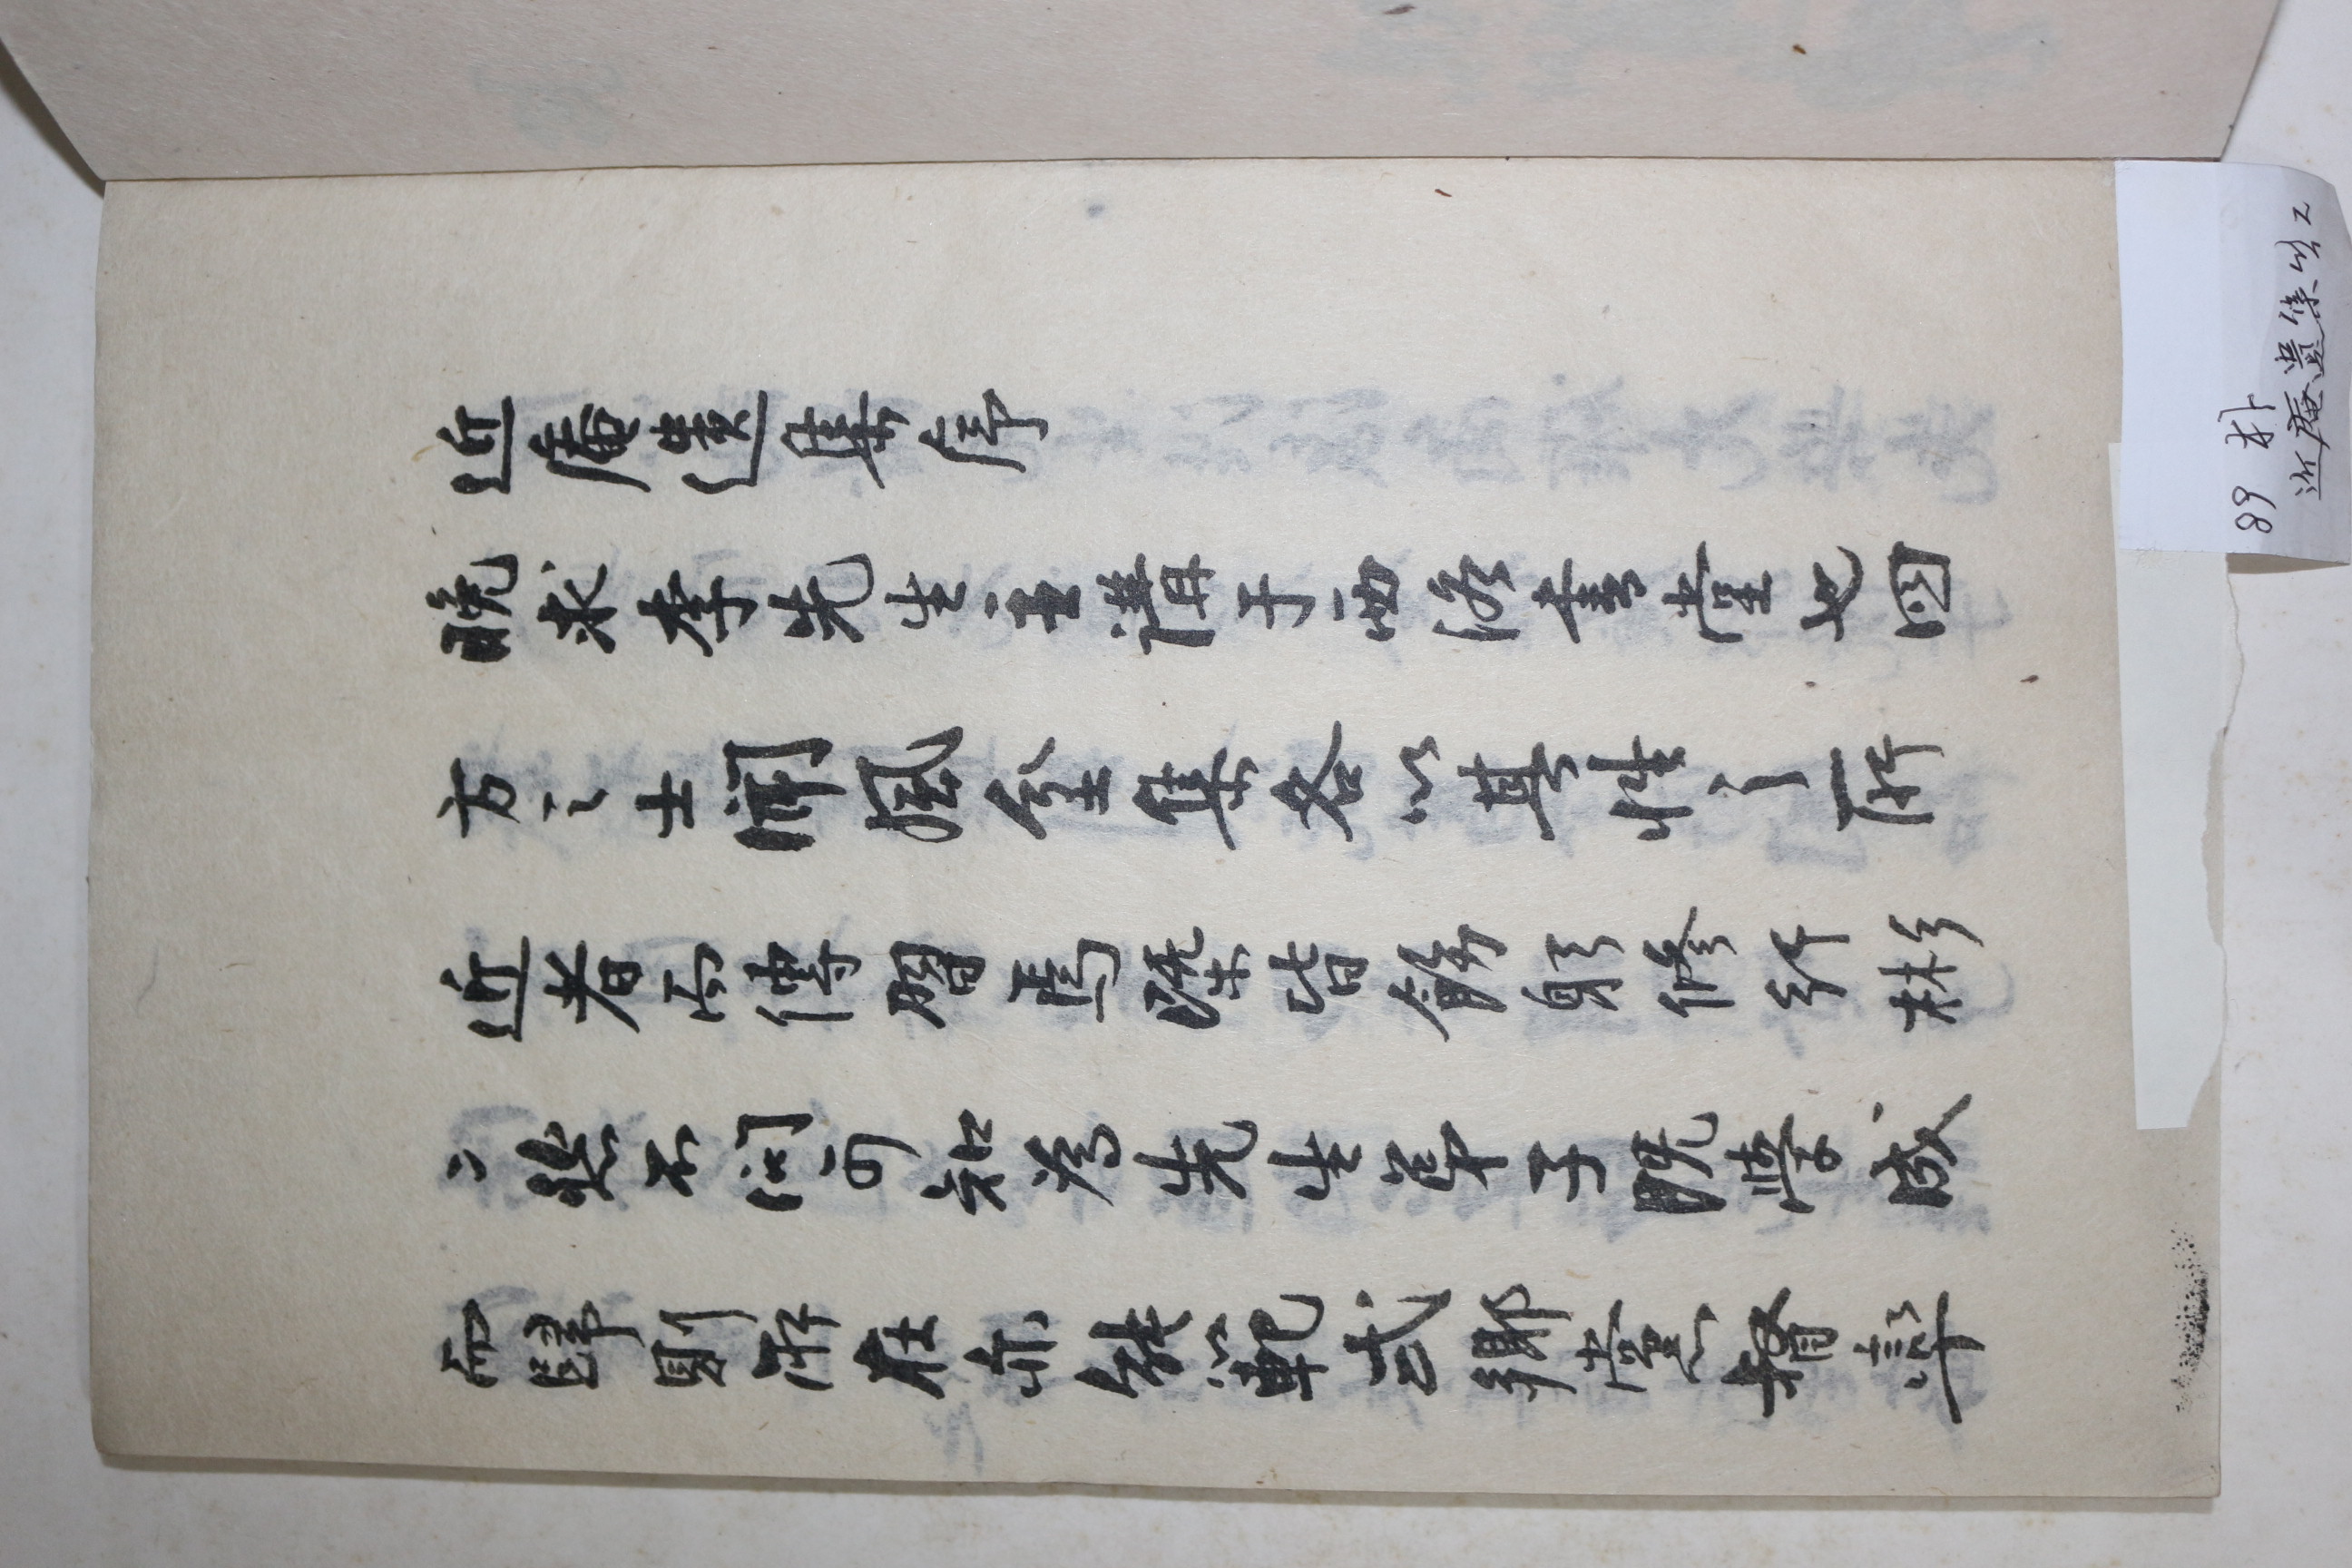 近庵遺集序
晩求李先生主講于西洛書堂也四
方之士聞風坌集各以其性之所
近者而傳習焉槩皆飭躬修行彬
〻然不問可知為先生弟子既學成
而歸則所在亦能範式鄉黨督率
89 朴
近庵遺集